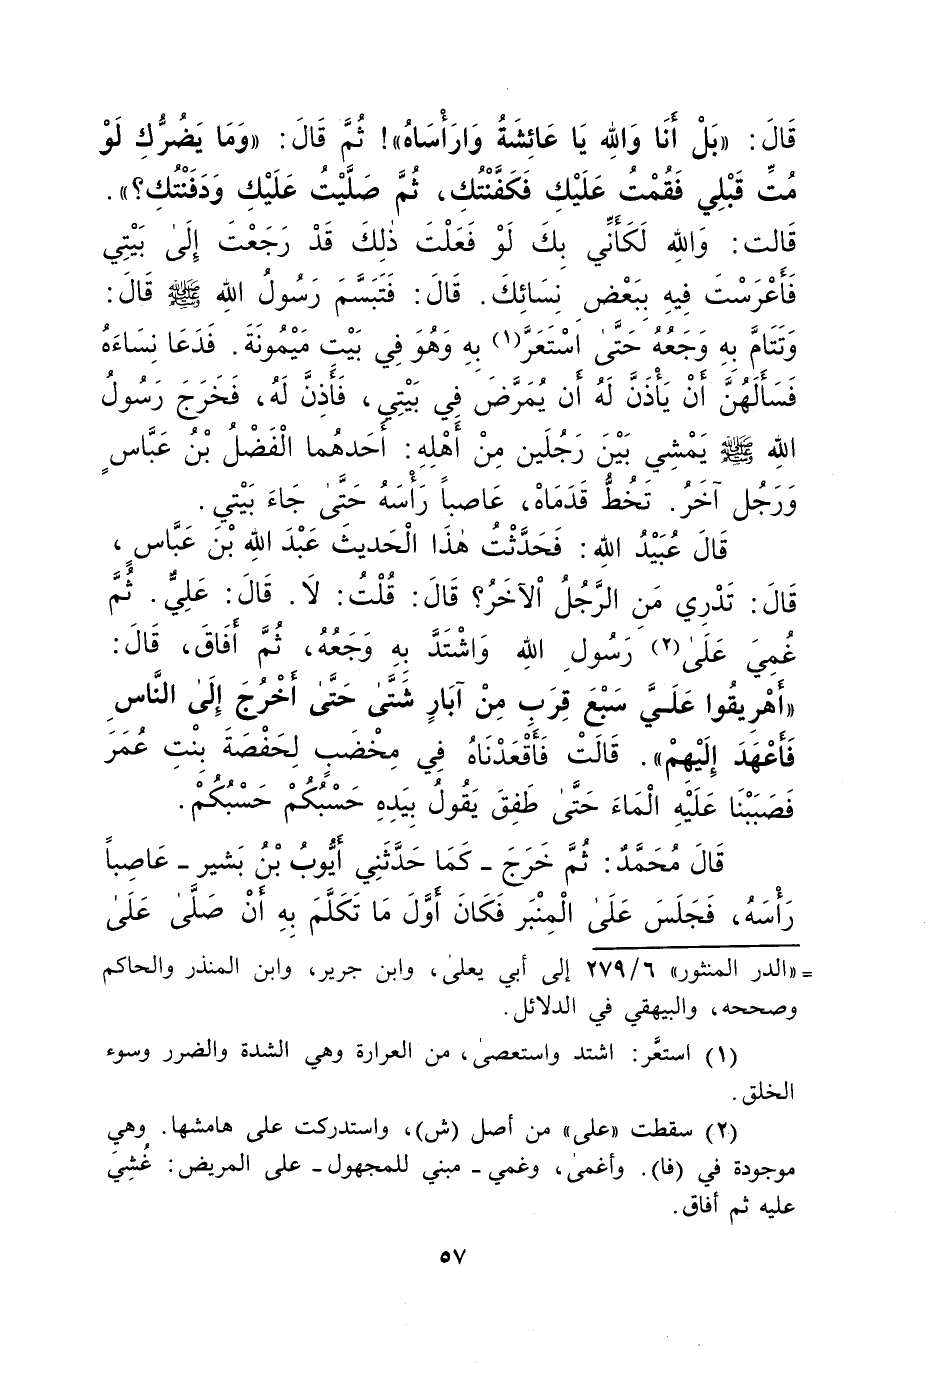 قَالَ: «بَلْ أَنَا وَاللهِ يَا عَائِشَةُ وَارَأْسَاهُ»! ثُمَّ قَالَ: «وَمَا يَضُرُّكِ لَوْ
مُتِّ قَبْلِي فَقُمْتُ عَلَيْكِ فَكَفَّنْتُكِ، ثُمَّ صَلَّيْتُ عَلَيْكِ وَدَفَنْتُكِ؟».
قَالت: وَاللهِ لَكَأَنِّي بِكَ لَوْ فَعَلْتَ ذٰلِكَ قَدْ رَجَعْتَ إِلَىٰ بَيْتِي
فَأَعْرَسْتَ فِيهِ بِبَعْضِ نِسَائِكَ. قَالَ: فَتَبَسَّمَ رَسُولُ اللهِ ﷺ قَالَ:
وَتَتَامَّ بِهِ وَجَعُهُ حَتَّىٰ اسْتَعَرَّ(١) بِهِ وَهُوَ فِي بَيْتِ مَيْمُونَةَ. فَدَعَا نِسَاءَهُ
فَسَأَلَهُنَّ أَنْ يَأْذَنَّ لَهُ أَن يُمَرَّضَ فِي بَيْتِي، فَأَذِنَّ لَهُ، فَخَرَجَ رَسُولُ
اللهِ ﷺ يَمْشِي بَيْنَ رَجُلَينِ مِنْ أَهْلِهِ: أَحَدهُما الْفَضْلُ بْنُ عَبَّاسٍ
وَرَجُل آخَرُ. تَخُطُّ قَدَمَاهْ، عَاصِباً رَأْسَهُ حَتَّىٰ جَاءَ بَيْتِي.
قَالَ عُبَيْدُ اللهِ: فَحَدَّثْتُ هٰذَا الْحَدِيثَ عَبْدَ اللهِ بْنَ عَبَّاسٍ،
قَالَ: تَدْرِي مَنِ الرَّجُلُ الْآخَرُ؟ قَالَ: قُلْتُ: لَا. قَالَ: عَلِيٌّ. ثُمَّ
غُمِيَ عَلَىٰ(٢) رَسُولِ اللهِ وَاشْتَدَّ بِهِ وَجَعُهُ، ثُمَّ أَفَاقَ، قَالَ:
«أَهْرِيقُوا عَلَيَّ سَبْعَ قِرَبٍ مِنْ آبَارٍ شَتَّىٰ حَتَّىٰ أَخْرُجَ إِلَىٰ النَّاسِ
فَأَعْهَدَ إِلَيْهِمْ». قَالَتْ فَأَقْعَدْنَاهُ فِي مِخْضَبٍ لِحَفْصَةَ بِنْتِ عُمَرَ
فَصَبَبْنَا عَلَيْهِ الْمَاءَ حَتَّىٰ طَفِقَ يَقُولُ بِيَدِهِ حَسْبُكُمْ حَسْبُكُمْ.
قَالَ مُحَمَّدُ: ثُمَّ خَرَجَ ـ كَمَا حَدَّثَنِي أَيُّوبُ بْنُ بَشير ـ عَاصِباً
رَأْسَهُ، فَجَلَسَ عَلَىٰ الْمِنْبَرِ فَكَانَ أَوَّلَ مَا تَكَلَّمَ بِهِ أَنْ صَلَّىٰ عَلَىٰ
= «الدر المنثور» ٢٧٩/٦ إلى أبي يعلىٰ، وابن جرير، وابن المنذر والحاكم
وصححه، والبيهقي في الدلائل.
(١) استعَّر: اشتد واستعصىٰ، من العرارة وهي الشدة والضرر وسوء
الخلق.
(٢) سقطت «على» من أصل (ش)، واستدركت على هامشها. وهي
موجودة في (فا). وأغمىٰ، وغمي ـ مبني للمجهول ـ على المريض: غُشِيَ
عليه ثم أفاق.
٥٧